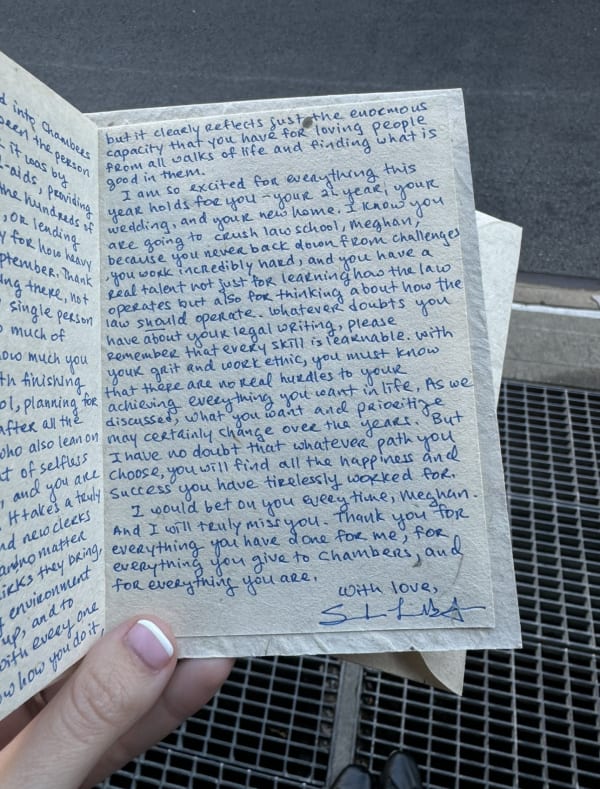 into Chambers
been the person
it was by
-aids, providing
the hundreds of
, or lending
for how heavy
ptember. Thank
ing there, not
single person
much of
how much you
th finishing
ol, planning for
after all the
who also lean on
of selfless
, and you are
. It takes a truly
new clerks
no matter
they bring,
environment
up, and to
with every one
how you do it,
but it clearly reflects just the enormous
capacity that you have for loving people
from all walks of life and finding what is
good in them.
I am so excited for everything this
year holds for you - your 2L year, your
wedding, and your new home. I know you
are going to crush law school, Meghan,
because you never back down from challenges
you work incredibly hard, and you have a
real talent not just for learning how the law
operates but also for thinking about how the
law should operate. Whatever doubts you
have about your legal writing, please
remember that every skill is learnable. With
your grit and work ethic, you must know
that there are no real hurdles to your
achieving everything you want in life. As we
discussed, what you want and prioritize
may certainly change over the years. But
I have no doubt that whatever path you
choose, you will find all the happiness and
success you have tirelessly worked for.
I would bet on you every time, Meghan.
And I will truly miss you. Thank you for
everything you have done for me, for
everything you give to Chambers, and
for everything you are.
With love,